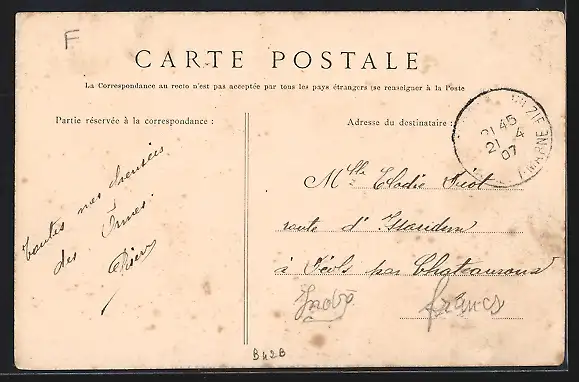 F
CARTE POSTALE
La Correspondance au recto n'est pas acceptée par tous les pays étrangers (se renseigner à la Poste
Partie réservée à la correspondance :
Adresse du destinataire :
21 45
21 4
07
MARNE
toutes mes
des
Mlle Elodie
route d'Issoudun
à Déols par Chateauroux
Indre
francs
B42B